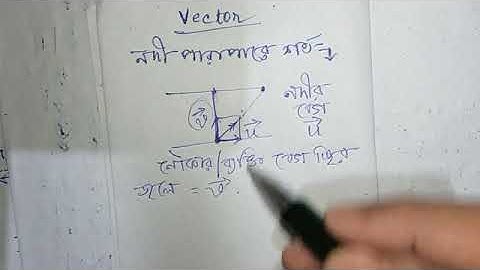 Vector
নদী পারাপারে শর্ত
নদীর
বেগ
v⃗ u⃗ u⃗
নৌকার/ব্যক্তির বেগ স্থির
জলে = v⃗